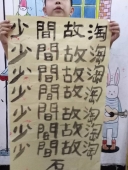 少間故淘
少間故淘
少間故淘
少間故淘
少間故淘
少間故淘
少間故淘
少間故淘
石